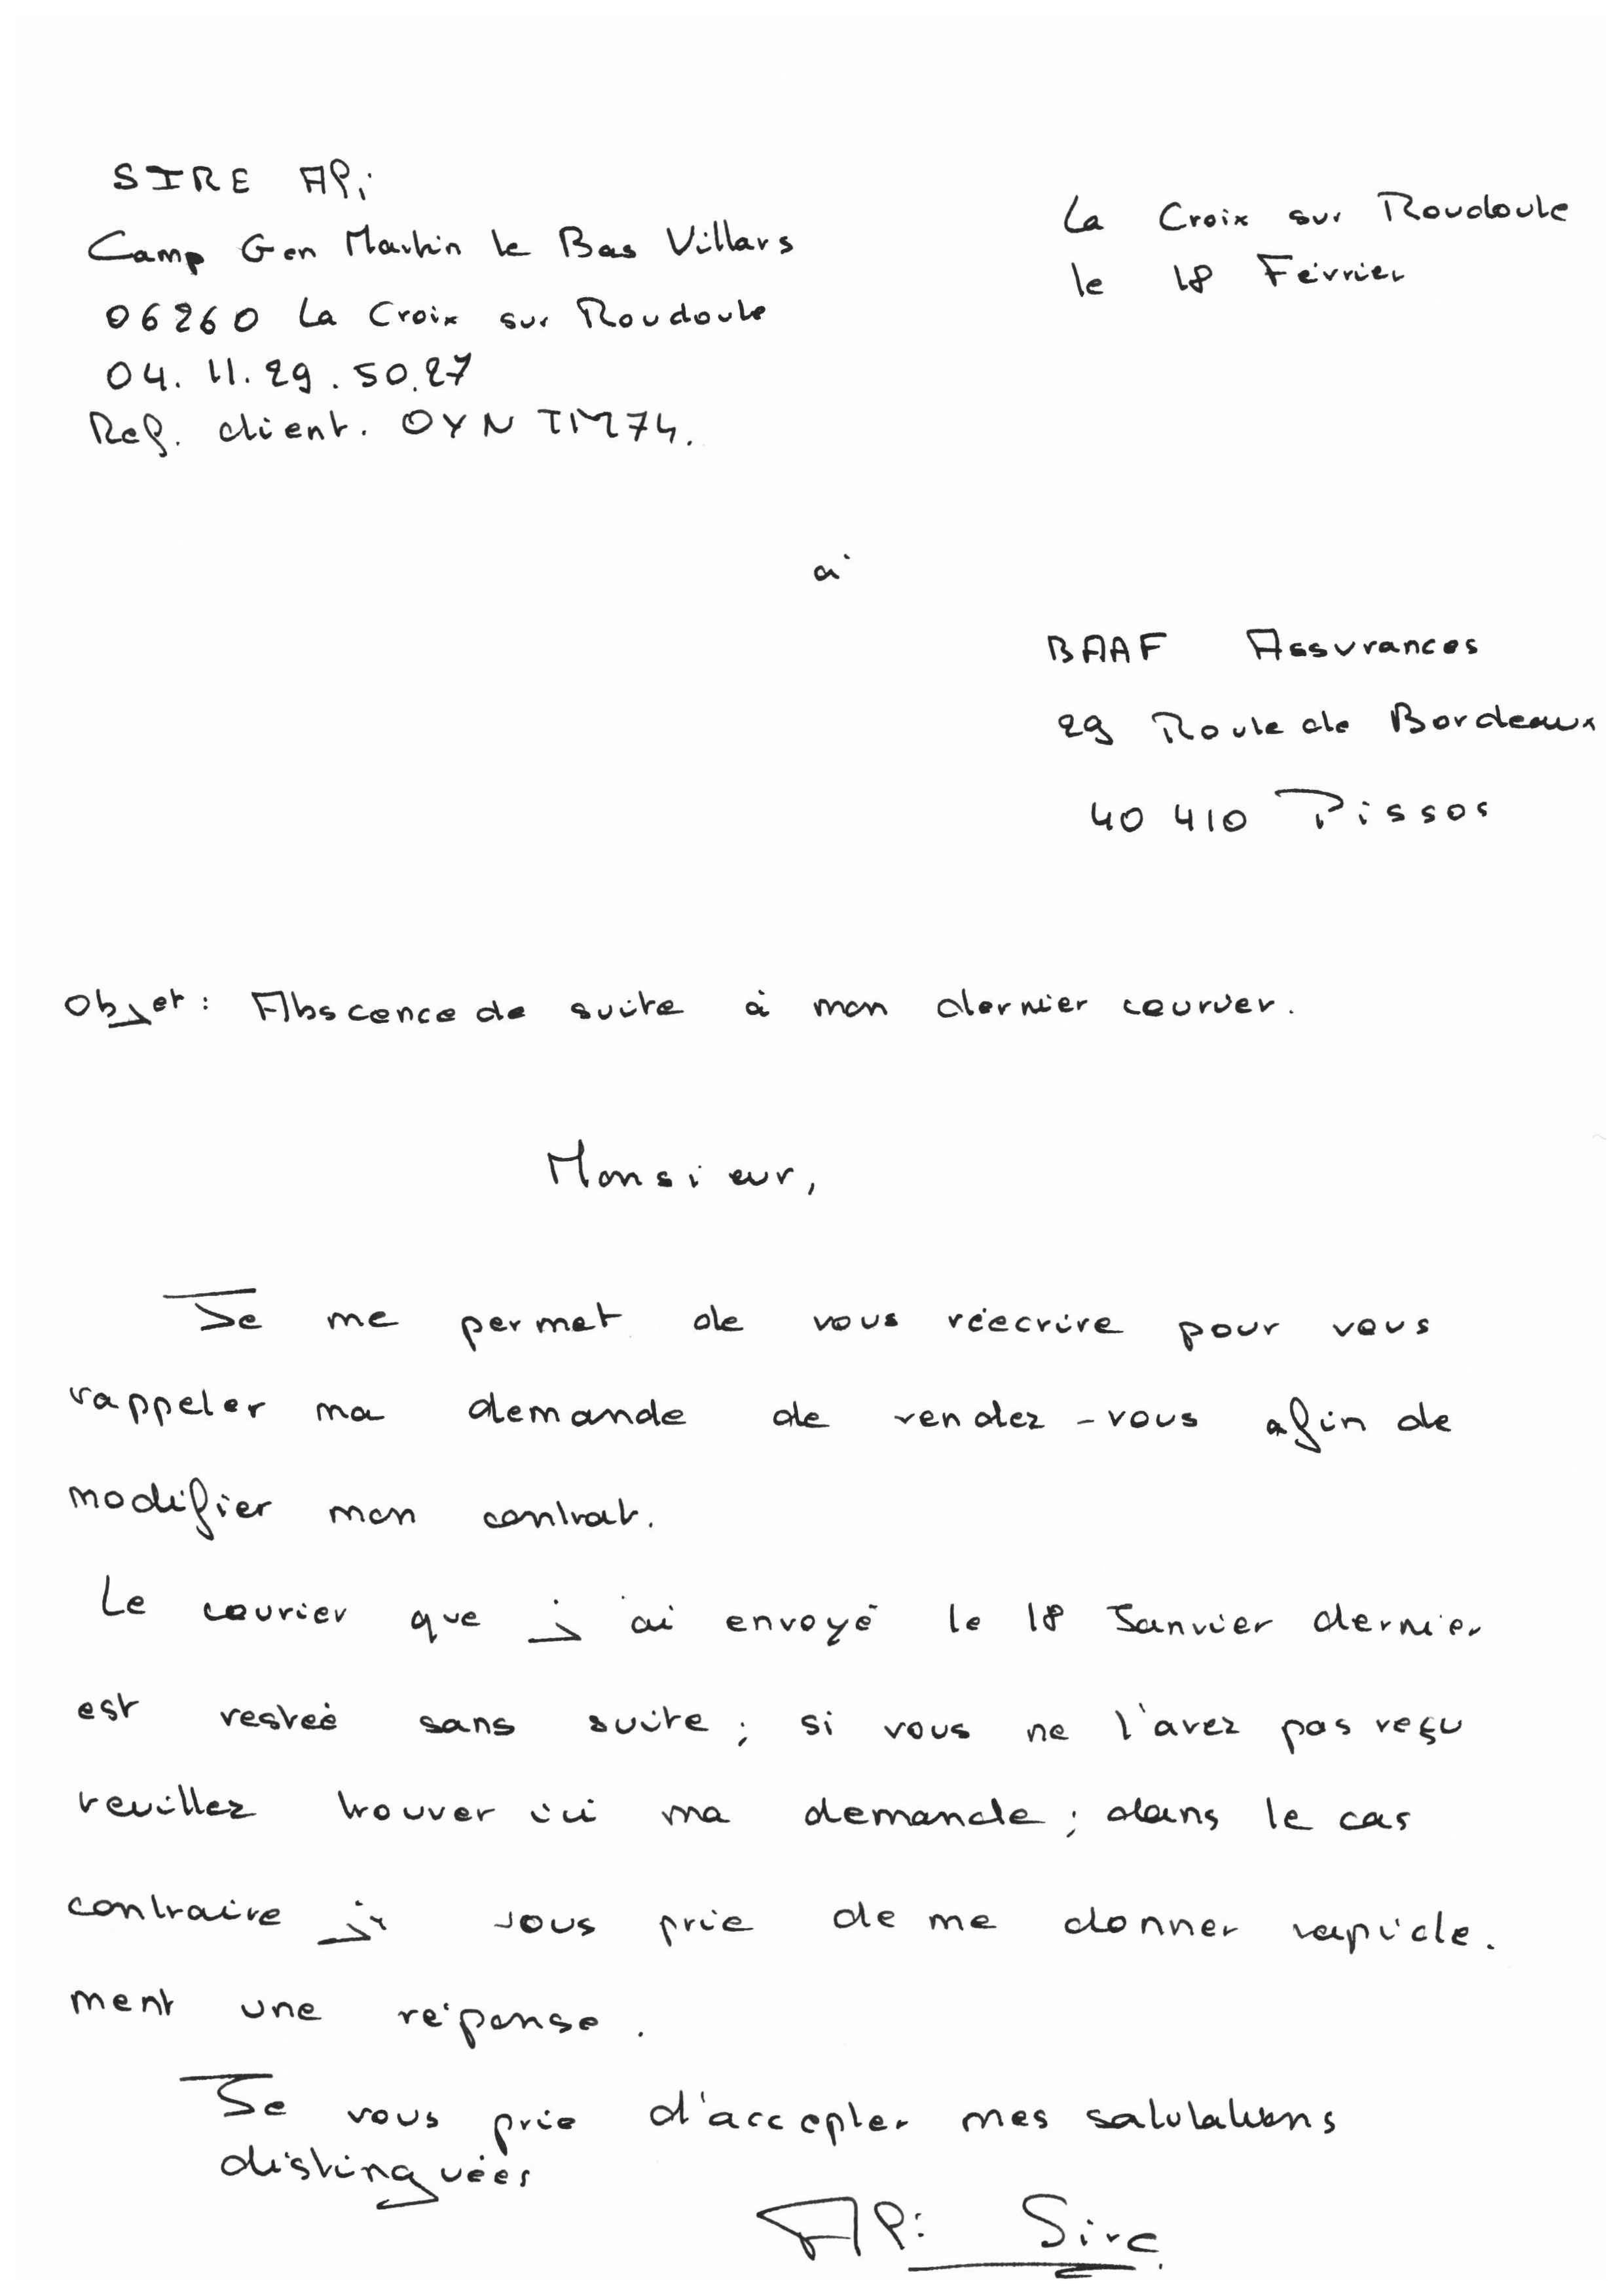 SIRE APi
Camp Gen Martin le Bas Villars
06260 La Croix sur Roudoule
04.11.29.50.27
Ref. client. OYNTM74.
La Croix sur Roudoule
le 18 Février
à
BAAF Assurances
29 Route de Bordeaux
40 410 Pissos
Objet : Abscence de suite à mon dernier courier.
Monsieur,
Je me permet de vous réecrire pour vous
rappeler ma demande de rendez-vous afin de
modifier mon contrat.
Le courier que j'ai envoyé le 18 Janvier dernier
est restée sans suite ; si vous ne l'avez pas reçu
veuillez trouver ici ma demande ; dans le cas
contraire je vous prie de me donner rapide.
ment une réponse.
Je vous prie d'accepter mes salutations
distinguées
APi Sire.